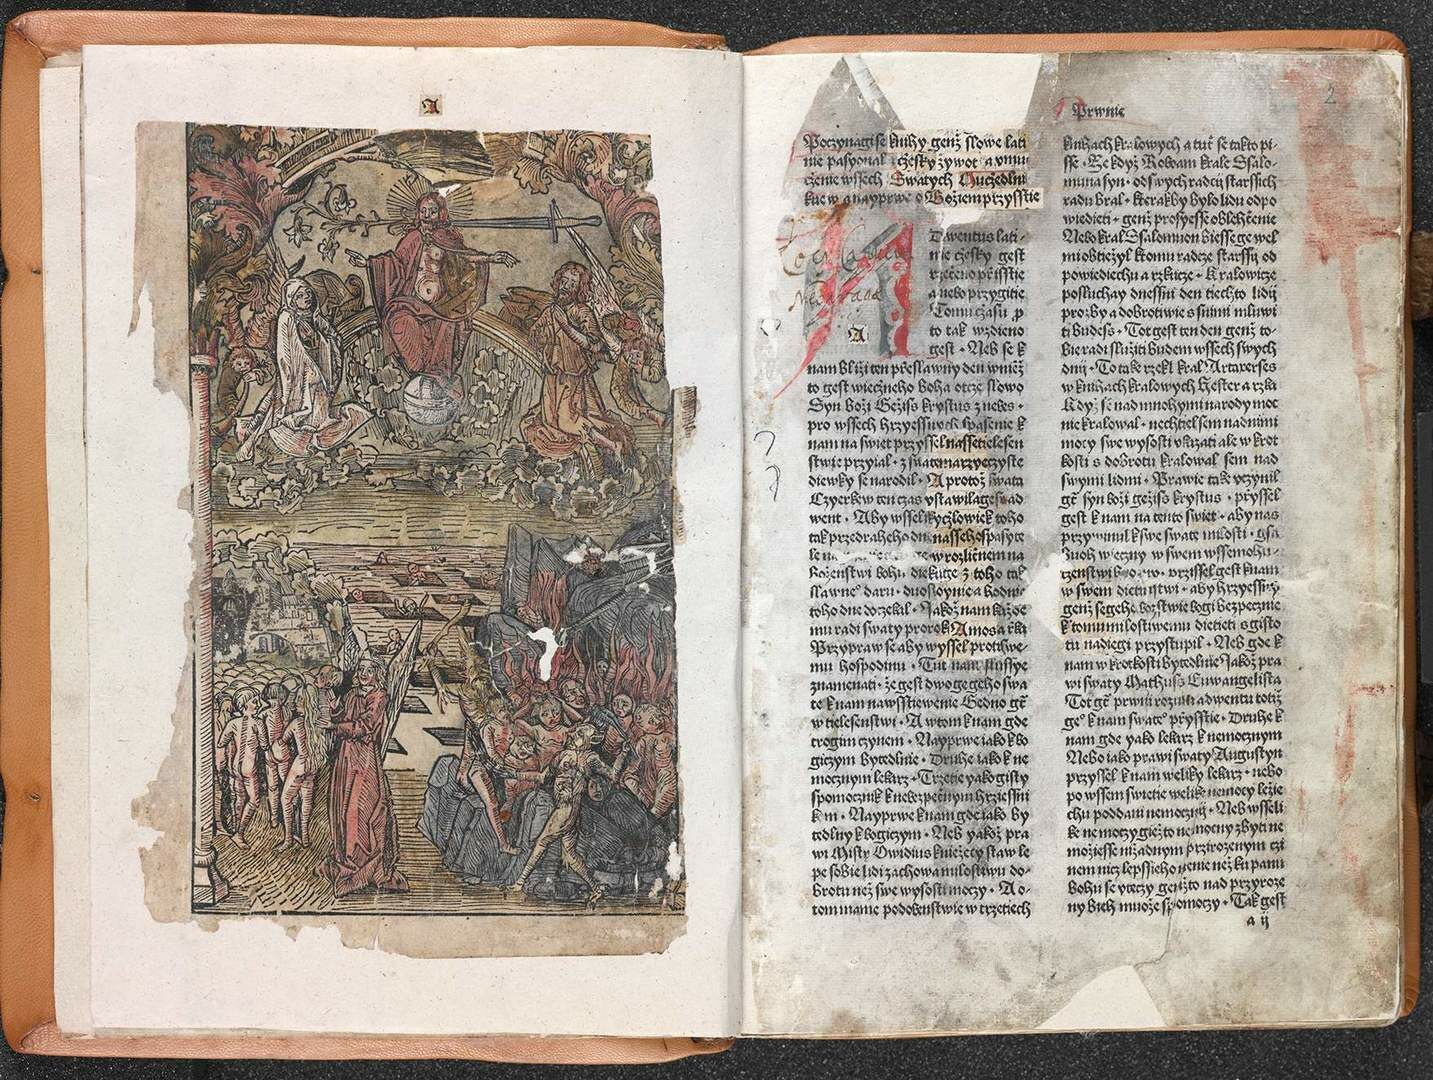 A
Prwnie
2
Poczynagi se knihy genž slowe lati
nie pasyonal · czesky žywot a vmu
czenie wssech Swatych Muczedlni
kuow a nayprwe o Božiem przysstie
Dwentus lati-
nie czesky gest
rzeczeno přisstie
a nebo przygitie
Tomu czasu p
to tak wzdieno
gest · Neb se k
A
nam bliži ten přeslawny den w niež
to gest wieczneho boha otcze slowo
Syn boži Gežiss krystus z nebes ·
pro wssech hrzyessnych spasenie k
nam na swiet przyssel nasse tielesen
stwie przyial · z swate marzye czyste
diewky se narodil · A protož swata
Czyerkew ten czas vstawila gest ad
went · Aby wsseliky czlowiek toho
tak przedraheho dne nasseho spasyte
w rozlicznem na
boženstwi bohu diekuge z toho tak
slawne° daru · duostoynie a hodnie
toho dne doczekal · Jakož nam každe
mu radi swaty prorok Amos a řka
Przypraw se aby wyssel protiwe-
mu hospodinu · Tut nam slussye
znamenati · že gest dwoge geho swa
te k nam nawsstiewenie Gedno gt̃
w tielesenstwi · A w tom k nam gde
trogim czynem · Nayprwe iako k bo
giczym bytedlnie · Druhe iako k ne
mocznym lekarz · Trzetie yako gisty
spomocznik k nebezpečnym hrziessni
kom · Nayprwe k nam gde iako by
tedlny k bogiczym · Neb yakož pra
wi Mistr Owidius kniežeczy staw le
pe sobie lidi zachowa milostiwu do-
brotu než swe wysosti moczy · A o-
tom mame podobenstwie w trzetiech
knihach kralowych a tut̃ se takto pi-
sse · Že když Roboam krale Ssalo-
muna syn · od swych radcij starssich
radu bral · kterak by bylo lidu odpo
wiedieti · genž prosyesse o blehčenie
Nebo kral Ssalomuon biesse ge wel
mi obtiežyl k tomu radcze starssij od
powiediechu a rzkucze · Kralowicze
posluchay dnessni den tiechto lidij
prozby a dobrotiwie s nimi mluwi
ti budess · Tot gest ten den genž to-
bie radi služiti budem wssech swych
dnij · To take rzekl kral Artaxerses
w knihach kralowych Hester a rzka
Když se nad mnohymi narody moc
nie kralowal · nechtiel sem nad nimi
moczy swe wysosti vkazati ale w krot
kosti s dobrotu kralowal sem nad
swymi lidmi · Prawie take vczynil
gt̃ syn boži gežiss krystus · přyssel
gest k nam na tento swiet · aby nas
przywinul k swe swate milosti · gsa
Buoh wieczny w swem wssemohu-
w swem dietinstwi · aby hrzyessný
genž se geho božstwie bogi bezpecznie
k tomu milostiwemu dieteti s gisto
tu nadiegi przystupil · Neb gde k
nam w krotkosti bytedlnie Jakož pra
wi swaty Mathuss Ewangelista
Tot gt̃ prwni rozum adwentu totiž
ge° k nam swate° přysstie · Druhe k
nam gde yako lekarz k nemocznym
Nebo iako prawi swaty Augustyn
przyssel k nam weliky lekarz · nebo
po wssem swietie welike nemoczy ležie
chu poddani nemocznij · Neb wsseli
ke nemoczy giežto nemoczny zbyti ne
možiesse nižadnym przirozenym czi
nem niczlepssieho nenie než ku panu
bohu se vteczy genžto nad przyroze
ny bieh muože spomoczy · Tak gest
a ij